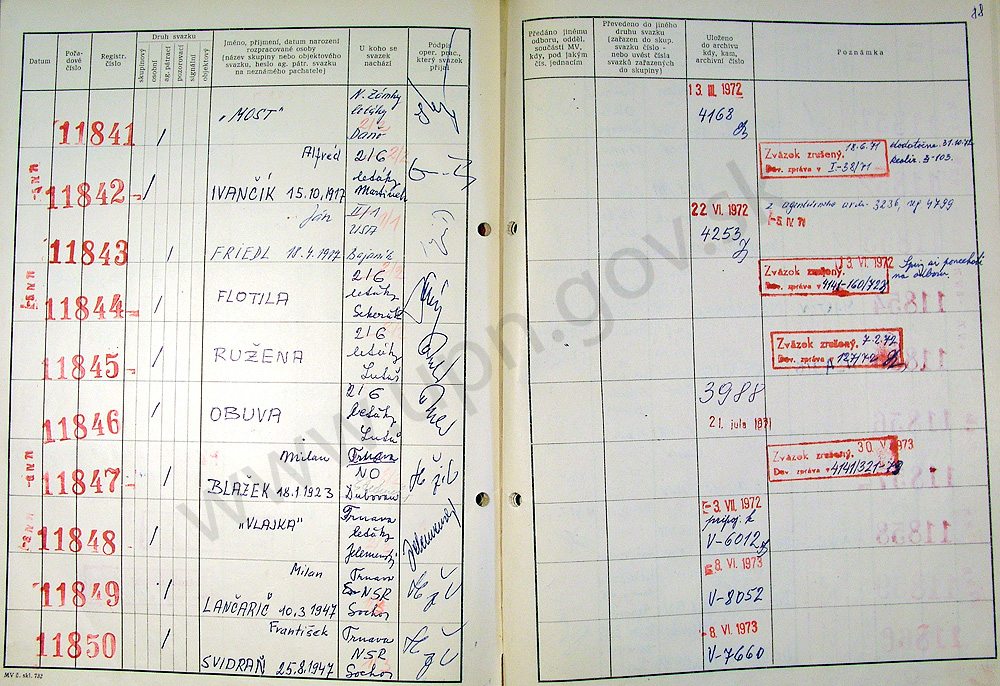 88
Datum
Pořadové číslo
Registr. číslo
Druh svazku
skupinový
osobní
ag. pátrací
pozorovací
signální
objektový
Jméno, příjmení, datum narození
rozpracované osoby
(název skupiny nebo objektového
svazku, heslo ag. pátr. svazku
na neznámého pachatele)
U koho se
svazek
nachází
Podpis
oper. prac.,
který svazek
přijal
Předáno jinému
odboru, odděl.
součásti MV,
kdy, pod jakým
čís. jednacím
Převedeno do jiného
druhu svazku
(zařazen do skup.
svazku číslo -
nebo uvést čísla
svazků zařazených
do skupiny)
Uloženo
do archivu
kdy, kam,
archivní číslo
Poznámka
11841
„MOST"
N. Zámky
letáky
Daňo
13. III. 1972
4168
11842
Alfréd
IVANČÍK 15.10.1917
2/6
letáky
Zväzok zrušený. 18.6.71
Dov. zpráva v I-38/71
dodatočne 31.10.72
11843
Ján
FRIEDL 18.4.1977
II/1
USA
22. VI. 1972
4253
z agentúrneho 3236, 4799
11844
FLOTILA
2/6
letáky
Sekerák
Zväzok zrušený. 13. VI. 1972
Dov. zpráva v 4141-160/723
Spis si ponechali
na odbore.
11845
RUŽENA
2/6
letáky
Zväzok zrušený. 7.2.72
Dov. zpráva v 127/72
11846
OBUVA
2/6
letáky
3988
21. júla 1971
11847
Milan
BLAŽEK 18.1.1923
Trnava
NO
Zväzok zrušený. 30. V. 1973
Dov. zpráva v 4141/321-73
11848
„VLAJKA"
Trnava
letáky
Jelemenský
-3. VII. 1972
pripoj. k
V-6012
11849
Milan
LANČARIČ 10.3.1947
Trnava
NSR
Sochor
-8. VI. 1973
V-8052
11850
František
SVIDRAŇ 25.8.1947
Trnava
NSR
Sochor
-8. VI. 1973
V-7660
MV č. skl. 732
www.upn.gov.sk